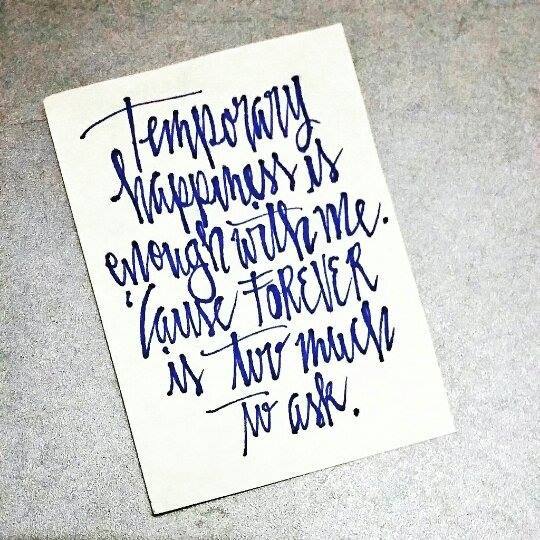 Temporary
happiness is
enough with me.
'Cause FOREVER
is too much
to ask.